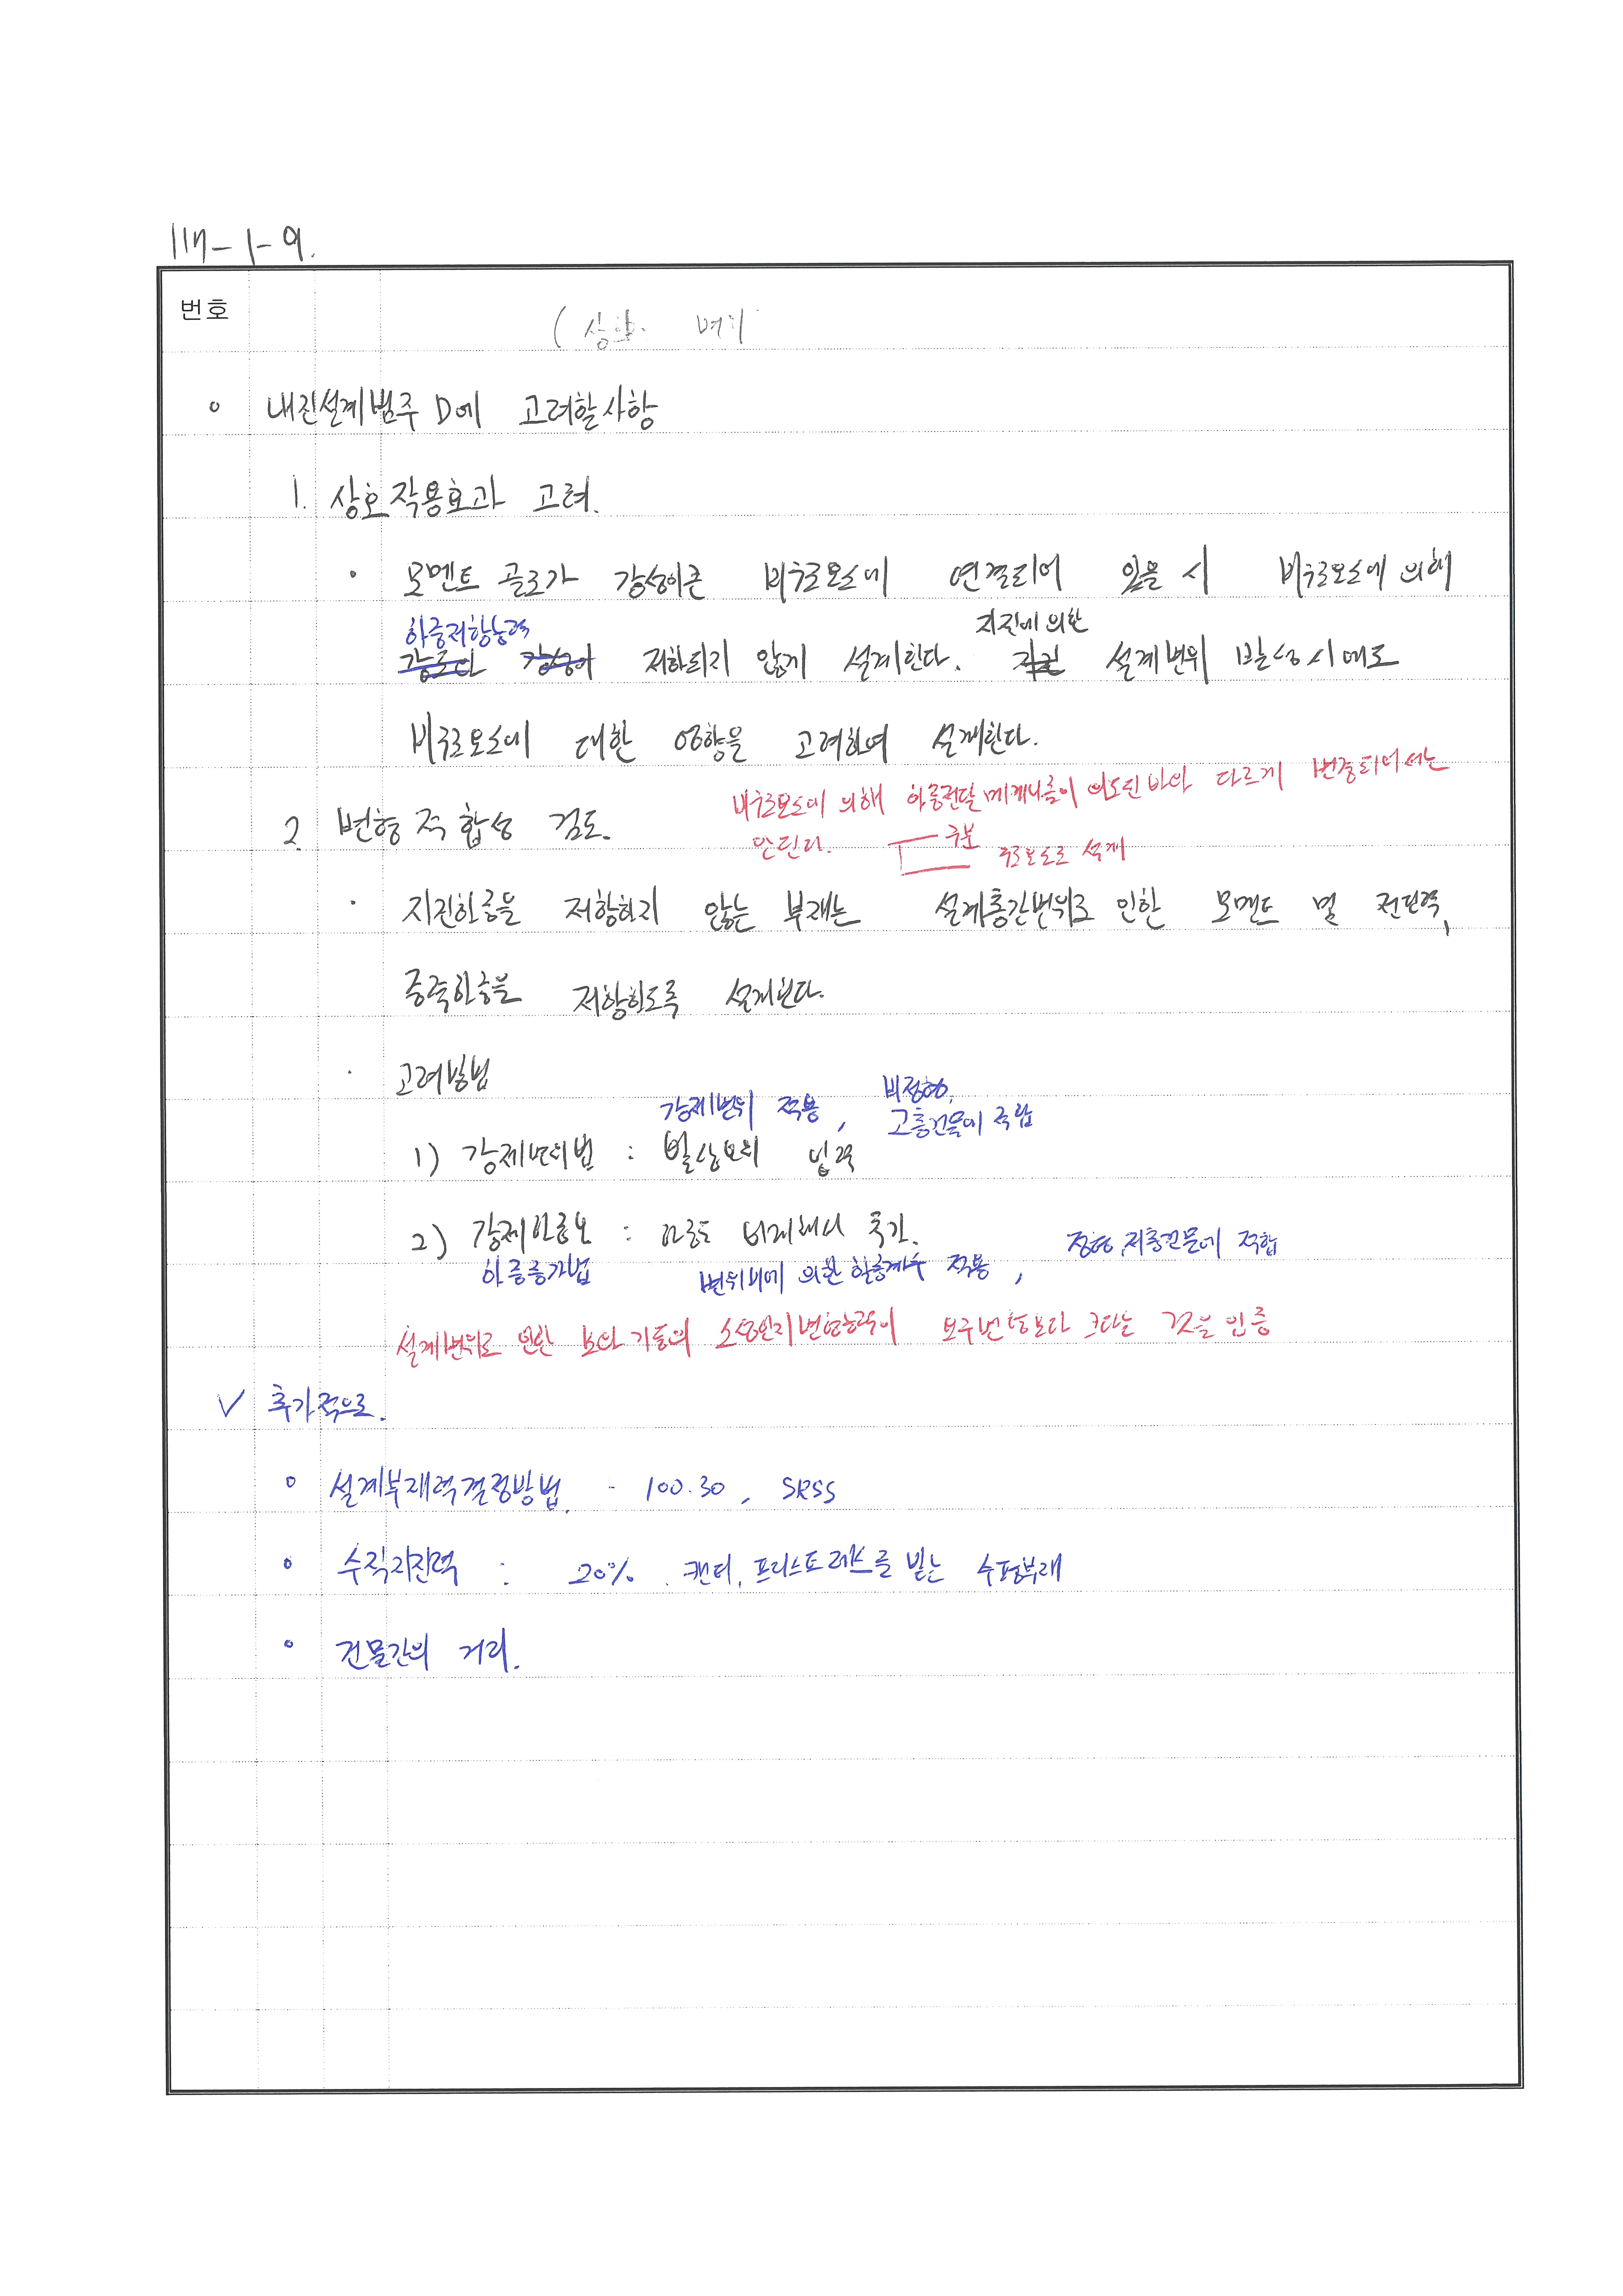 117-1-9.
번호
(상호 변위
내진설계범주 D에 고려할사항
1. 상호작용효과 고려.
· 모멘트 골조가 강성이큰 비구조요소에 연결되어 있을 시 비구조요소에 의해
하중저항능력 지진에 의한
강도나 강성이 저하되지 않게 설계한다. 지진 설계변위 발생시에도
비구조요소에 대한 영향을 고려하여 설계한다.
비구조요소에 의해 하중전달 메커니즘이 의도된 바와 다르게 변경되어서는
2. 변형 적합성 검토.
안된다. 구분
구조요소로 설계
· 지진하중을 저항하지 않는 부재는 설계층간변위로 인한 모멘트 및 전단력,
중력하중을 저항하도록 설계한다.
· 고려방법
강제변위 적용, 비정형,
고층건물에 적합
1) 강제변위법 : 입력
2) : 추가.
정형, 저층건물에 적합
하중증가법 변위비에 의한 하중계수 적용,
설계변위로 인한 보와 기둥의 소성힌지변형능력이 요구변형보다 크다는 것을 입증
✓ 추가적으로.
설계부재력결정방법. - 100.30, SRSS
수직지진력 : 20% . 캔터, 프리스트레스를 받는 수평부재
건물간의 거리.